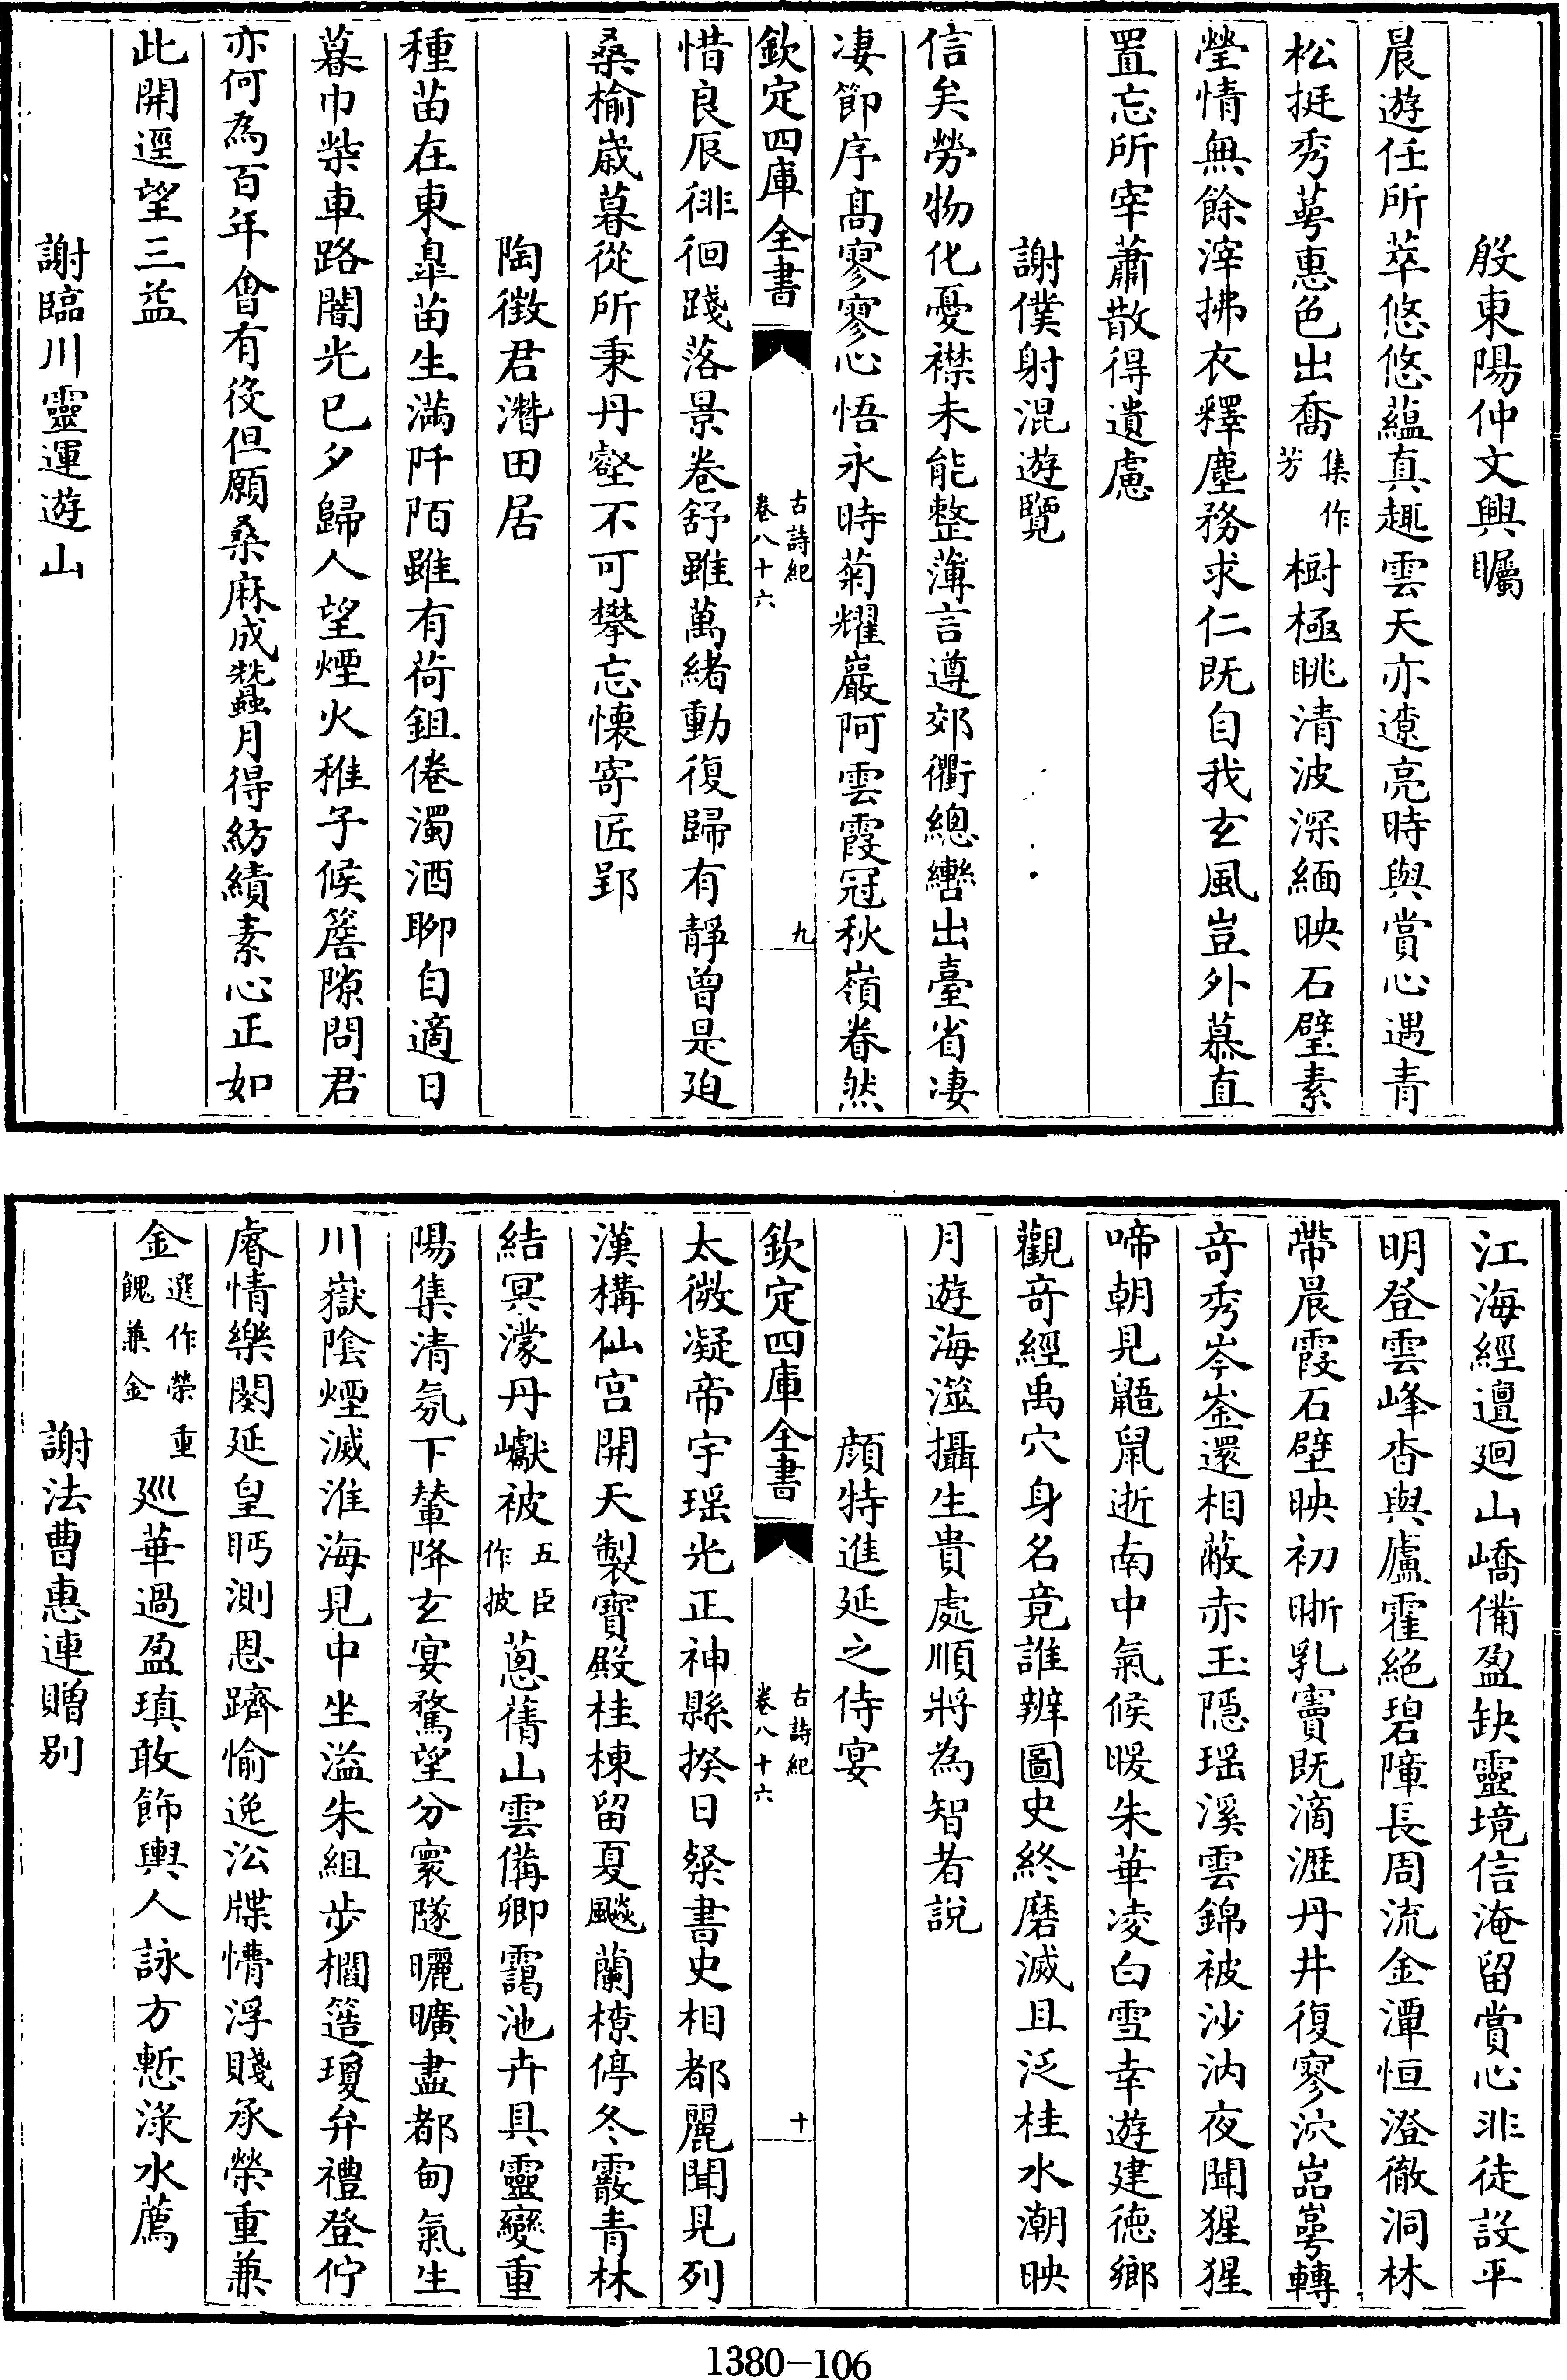 殷東陽仲文興矚
晨遊任所萃悠悠藴真趣雲天亦遼亮時與賞心遇青
松挺秀萼惠色出喬集作芳樹極眺清波深緬映石壁素
瑩情無餘滓拂衣釋塵務求仁既自我玄風豈外慕直
置忘所宰蕭散得遺慮
謝僕射混遊覽
信矣勞物化憂襟未能整薄言遵郊衢總轡出臺省凄
凄節序髙寥寥心悟永時菊耀巖阿雲霞冠秋嶺眷然
欽定四庫全書 古詩紀 卷八十六 九
惜良辰徘徊踐落景卷舒雖萬緒動復歸有靜曾是廹
桑榆歳暮從所秉丹壑不可攀忘懷寄匠郢
陶徴君潛田居
種苗在東臯苗生滿阡陌雖有荷鉏倦濁酒聊自適日
暮巾柴車路闇光已夕歸人望煙火稚子候簷隙問君
亦何為百年會有役但願桑麻成蠶月得紡績素心正如
此開逕望三益
謝臨川靈運遊山
江海經邅廻山嶠備盈缺靈境信淹留賞心非徒設平
明登雲峰杳與廬霍絶碧障長周流金潭恒澄徹洞林
帶晨霞石壁映初晣乳竇既滴瀝丹井復寥泬嵓崿轉
竒秀岑崟還相蔽赤玉隱瑶溪雲錦被沙汭夜聞猩猩
啼朝見鼯鼠逝南中氣候暖朱華凌白雪幸遊建徳鄉
觀竒經禹穴身名竟誰辨圖史終磨滅且泛桂水潮映
月遊海澨攝生貴處順將為智者説
顔特進延之侍宴
欽定四庫全書 古詩紀 卷八十六 十
太微凝帝宇瑶光正神縣揆日粲書史相都麗聞見列
漢構仙宫開天製寶殿桂棟留夏飈蘭橑停冬霰青林
結冥濛丹巘被五臣作披蔥蒨山雲備卿靄池卉具靈變重
陽集清氛下輦降玄宴騖望分寰隧曬曠盡都甸氣生
川嶽陰煙滅淮海見中坐溢朱組步櫩簉瓊弁禮登佇
睿情樂闋延皇眄測恩躋愉逸沿牒懵浮賤承榮重兼
金選作榮重餽兼金廵華過盈瑱敢飾輿人詠方慙渌水薦
謝法曹惠連贈别
1380-106